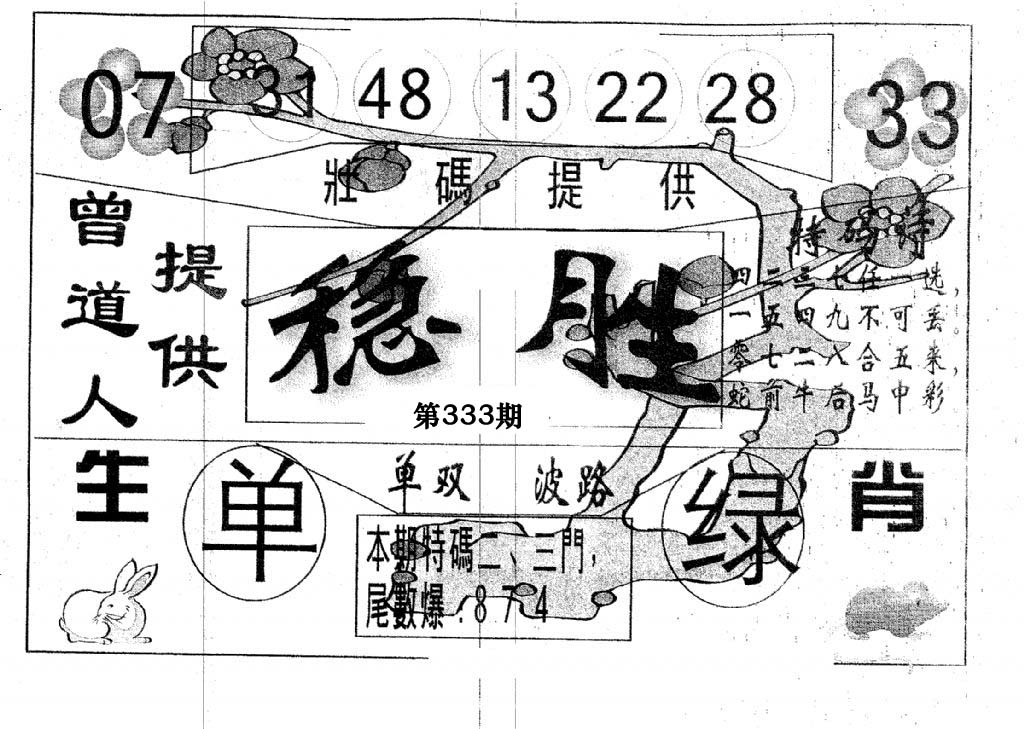 07 31 48 13 22 28 33
壯碼提供
曾道人
提供
稳胜
第333期
特码诗
四二三七任一选，
一五四九不可丢。
零七二八合五来，
蛇前牛后马中彩
生
肖
单
单双 波路
绿
本期特碼二、三門，
尾數爆：874